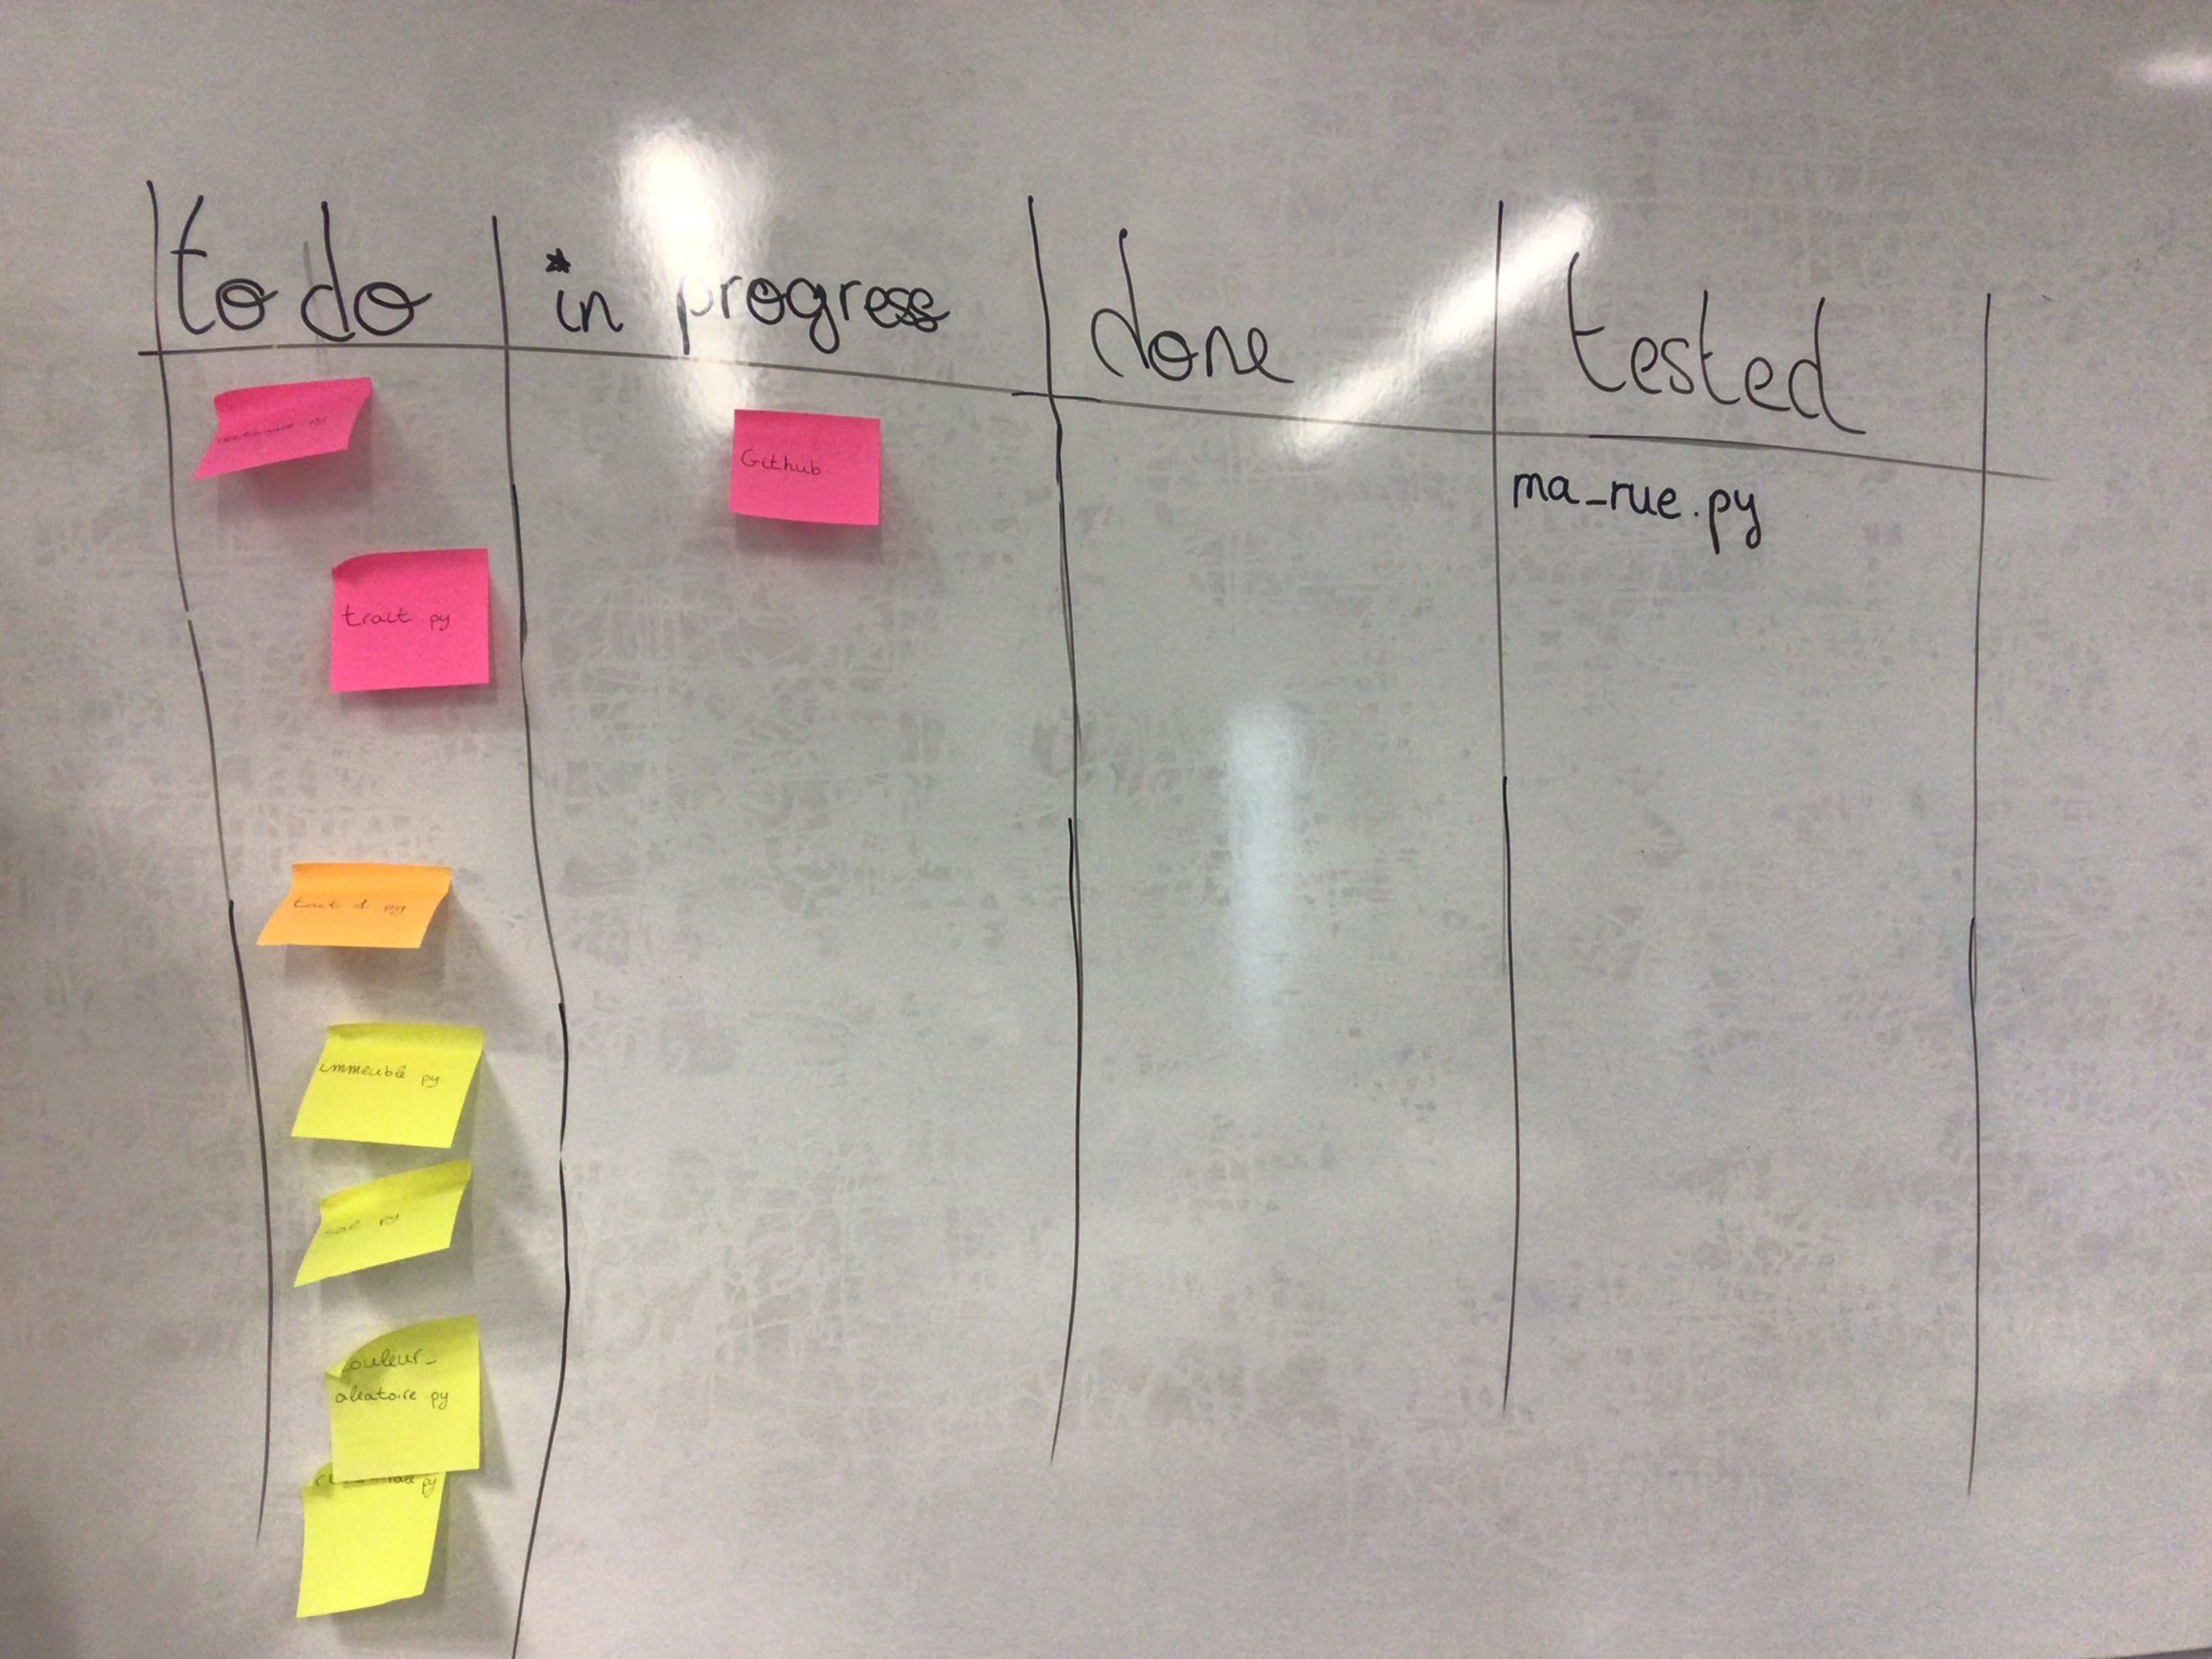 to do
in progress
done
tested
rectangle py
Github
ma_rue.py
trait py
immeuble py
sol py
couleur_
aleatoire py
py